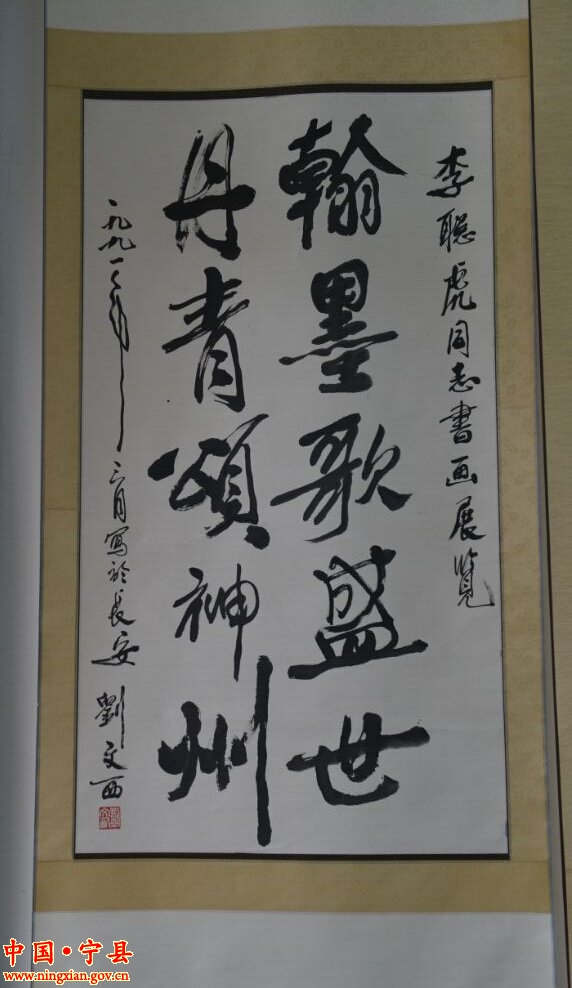 李聪虎同志書画展览
翰墨歌盛世
丹青頌神州
三月寫於長安 劉文西
中国·宁县
www.ningxian.gov.cn